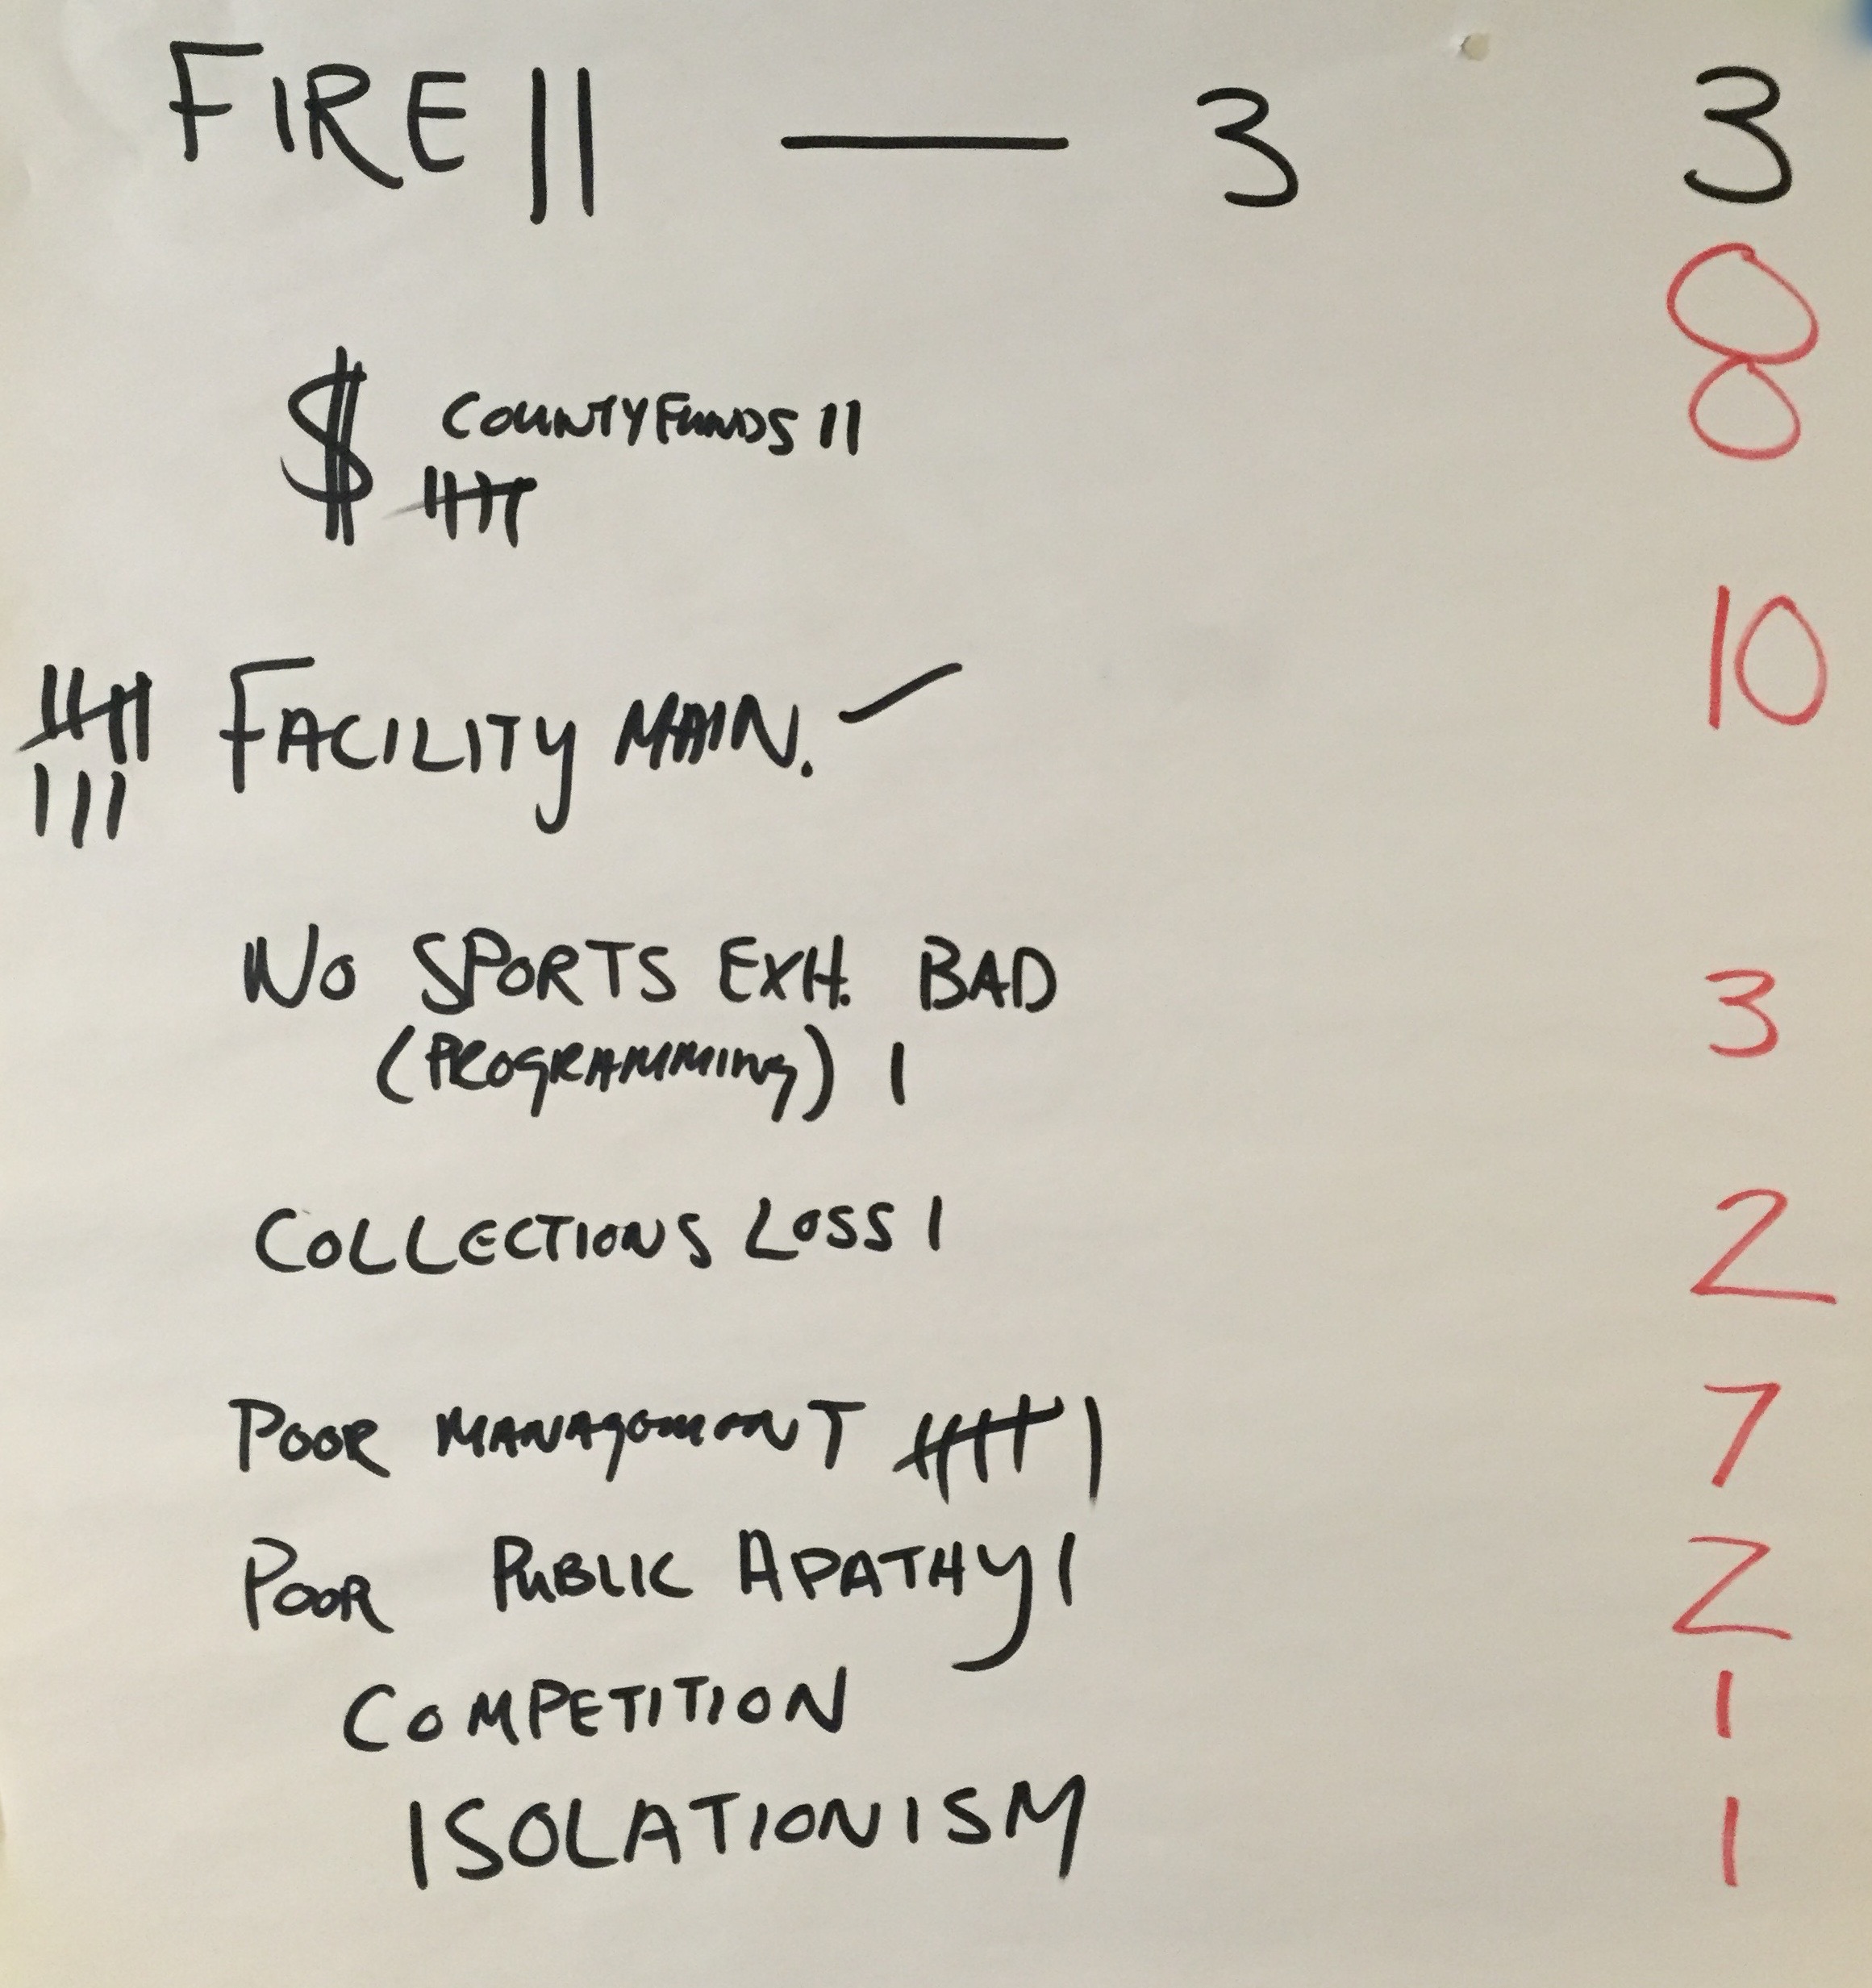 FIRE || — 3 3
8
$ COUNTY FUNDS ||
||||
10
|||| FACILITY MAIN. ✓
|||
NO SPORTS EXH. BAD
(PROGRAMMING) | 3
COLLECTIONS LOSS | 2
POOR MANAGEMENT |||| | 7
POOR PUBLIC APATHY | 2
COMPETITION 1
ISOLATIONISM 1